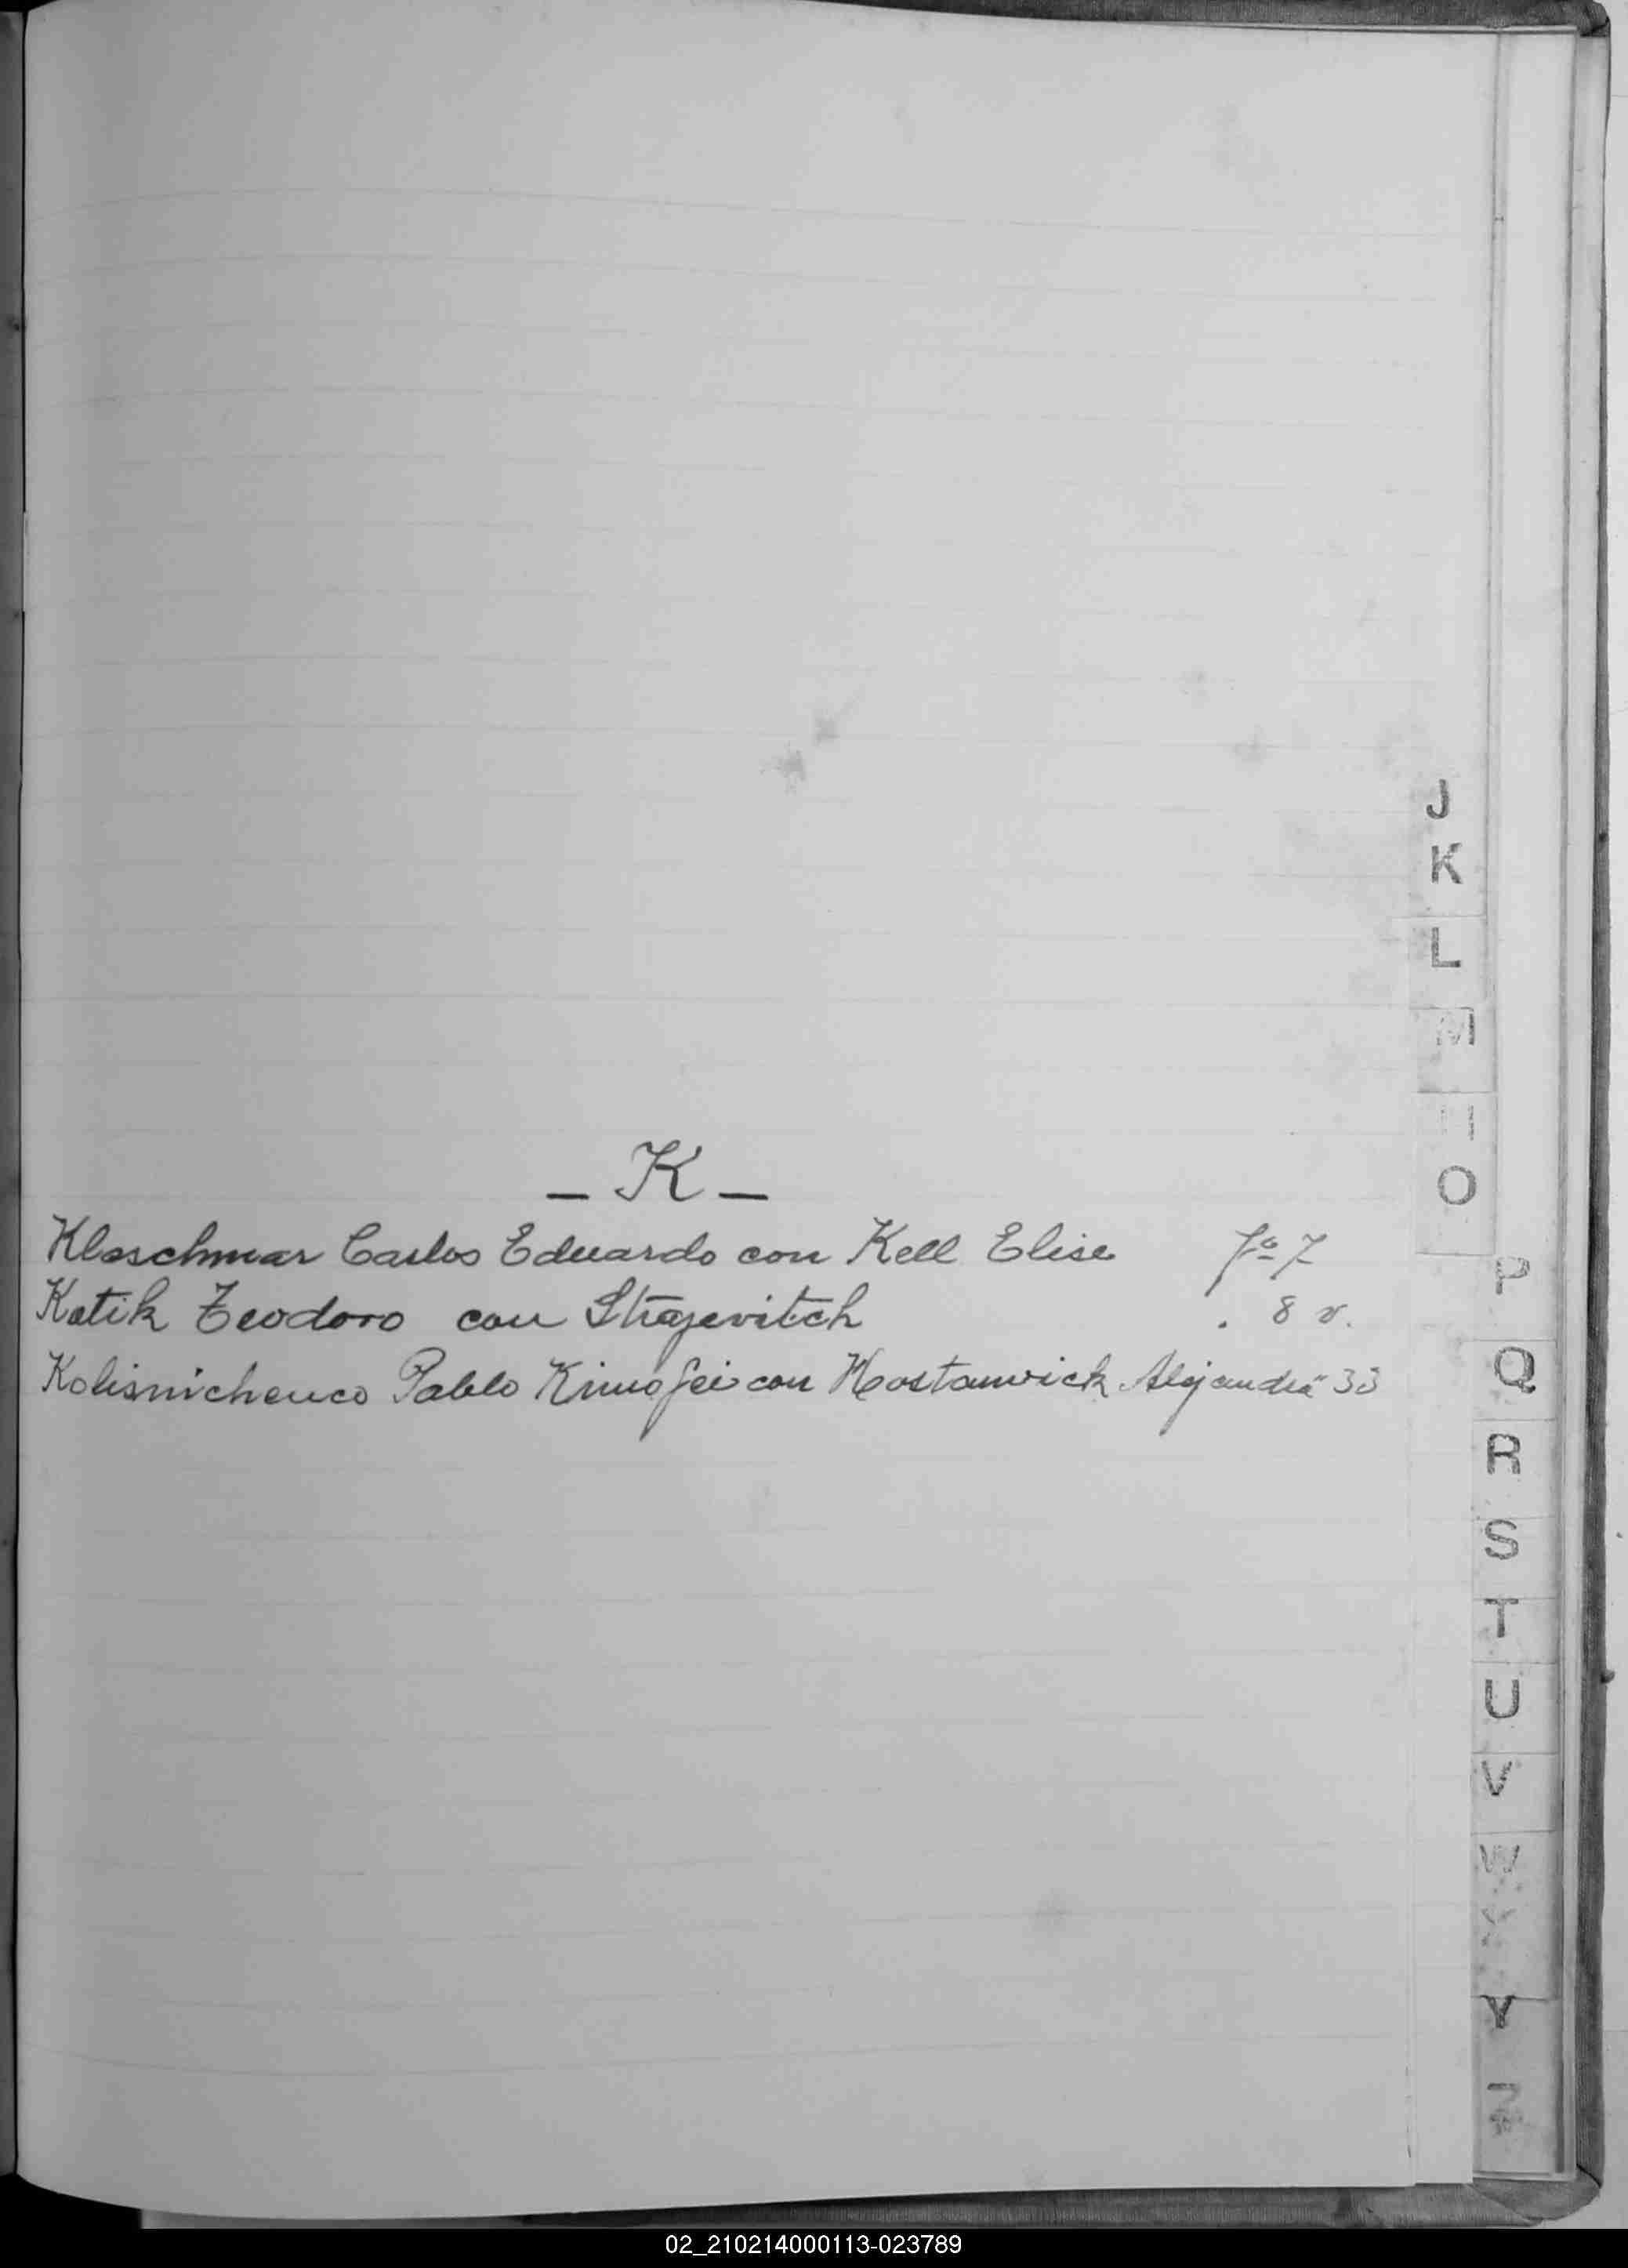 - K -
Kloschmar Carlos Eduardo con Kell Elise fº 7
Katik Teodoro con Strajevitch . 8 v.
Kolisnichenco Pablo Kimofei con Kostanwick Alejandra " 33
J
K
L
M
O
P
Q
R
S
T
U
V
W
Y
02_210214000113-023789